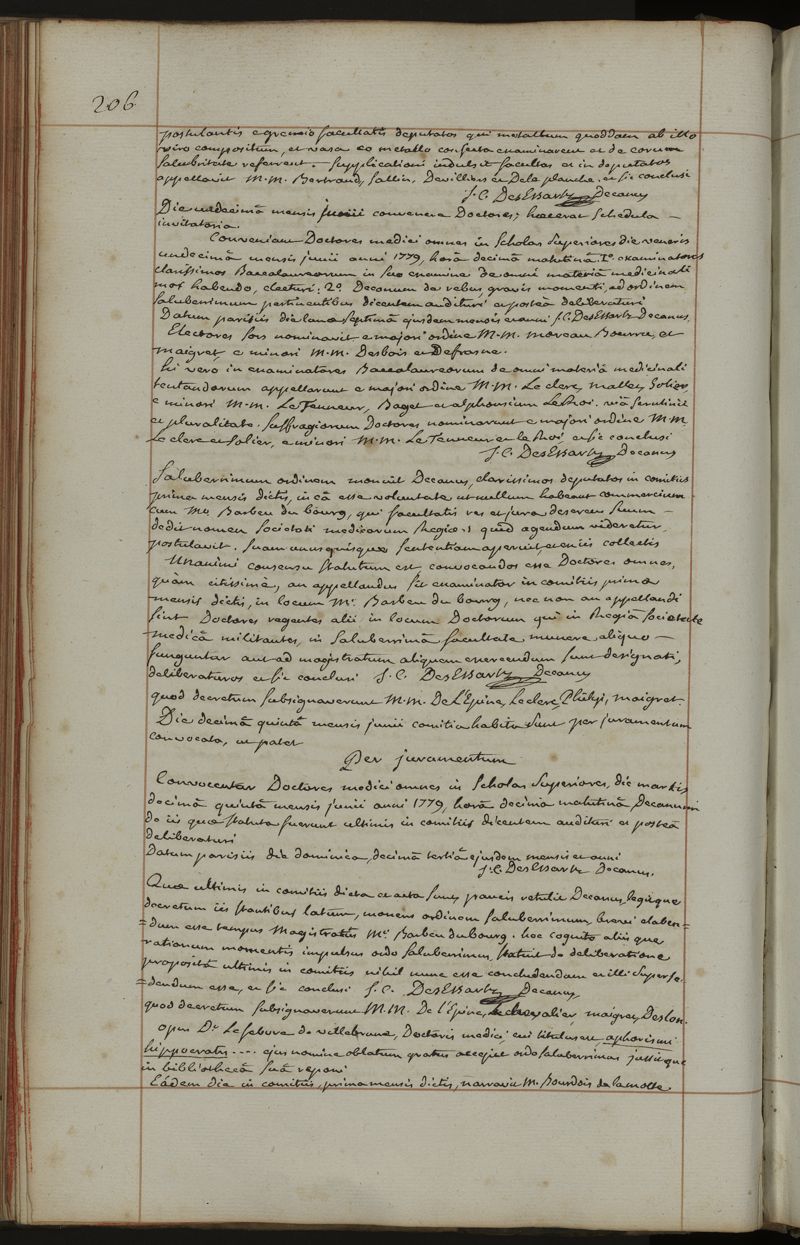 206
postulantis e gremio facultatis deputatos qui metallum quoddam ab illo
viro compositum, et vasa eo metallo confecta examinarent et de eorum
salubritate referrent. supplicationi indulsit facultas et in deputatos
appellavit M.M. Bertrand, Sallin, Devilliers et Dela planche. et sic conclusi
J.C. DesEssartz Decanus
Die undecimâ mensis junii convenere Doctores; hæc erat schedula –
invitatoria.
Conveniant Doctores medici omnes in Scholas Superiores die veneris
undecimâ mensis junii anni 1779, horâ decimâ matutinâ. 1º. examinatores
clarissimos Baccalaureorum in suo examine de omni materiâ medicinali
mox habendo, electuri: 2º. Decanum de rebus gravis momenti, ad ordinem
saluberrimum pertinentibus dicentem audituri et posteà deliberaturi
Datum parisiis die lunæ septimâ ejusdem mensis et anni J.C. DesEssartz Decanus.
Electores sors nominavit e majori ordine M.M. moreau Bourru, et
maigret e minori M.M. Desbois et Defrasne.
hi vero in examinatores Baccalaureorum de omni materiâ medicinali
tentandorum appellarunt e majori ordine M.M. Le clerc, mallet, Solier
e minori M.M. Le Tenneur, Baget et alphonsium Le Roi. viâ scrutinii
et pluralitate suffragiorum Doctores nominarunt e majori ordine M.M.
Le clerc et Solier, e minori M.M. Le Tenneur et le Roi, et sic conclusi
J.C. DesEssartz Decanus
Saluberrimum ordinem monuit Decanus, clarissimos deputatos in comitiis
prima mensis dictis, in eâ esse voluntate ut nullum habeant commercium
cum Mº. Barbeu du bourg, qui facultatis res et jura deserens suum –
dedit nomen societati medicorum Regiæ; quid agendum videretur
postulavit. suam unusquisque sententiam aperuit, et en iis collectis
Unanimi consensu statutum est convocandos esse Doctores omnes,
quam citissimè, an appellandus sit examinator in comitiis prima
mensis dictis, in locum Mi. Barbeu du bourg, nec non an appellandi
sint Doctores regentes alii in locum Doctorum qui in Regiâ societate
medicâ militantes, in saluberrimâ facultate munere aliquo –
funguntur aut ad magistratum aliquem exercendum sunt designati,
deliberaturos et sic conclusi J.C. DesEssartz Decanus
quod decretum subsignaverunt M.M. De L'Epine, Leclerc, Philip, maigret.
Die decimâ quintâ mensis junii comitia habita sunt per juramentum
convocata, ut patet
Per juramentum
Convocentur Doctores medici omnes in Scholas Superiores, die martis
decimâ quintâ mensis junii anni 1779, horâ decima matutinâ Decanum
de iis quæ statuta fuerunt ultimis in comitiis dicentem audituri et posteà
deliberaturi
Datum parisiis die dominicâ, decimâ tertiâ ejusdem mensis et anni
J.C. DesEssartz Decanus.
Quæ ultimis in comitiis dicta et acta sunt paucis retulit Decanus, legitque
decretum iis stantibus latum, monens ordinem saluberrimum, brevi elaben=
=dum esse tempus Magistratûs Mi. Barbeu dubourg. hoc cognito aliis que
rationum momentis impulsus ordo saluberrimus, statuit de deliberatione
propositâ ultimis in comitiis nihil nunc esse concludendum et illi superse=
=dendum esse, et sic conclusi J.C. DesEssartz Decanus
quod decretum subsignaverunt M.M. De l'Epine, Lechevalier, maigret, Deslon.
opus Di. Lefebure de villebrune, Doctoris medici, cui titulus est aphorismi
hippocratis .... ejus nomine oblatum gratus accepit ordo saluberrimus jussitque
in bibliothecâ suâ reponi
Eâdem die in comitiis, prima mensis dictis, narravit M. Bourdois de lamotte